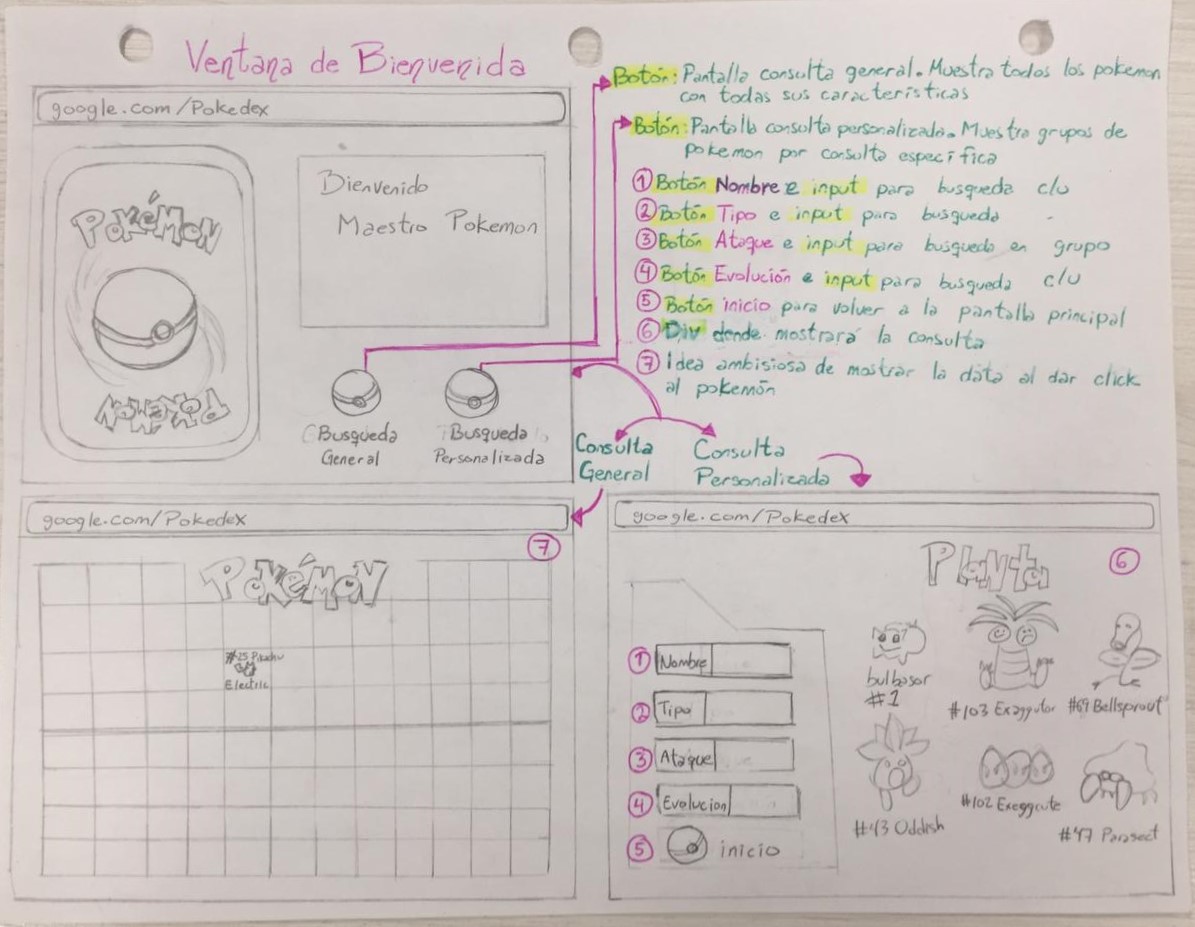 Ventana de Bienvenida
google.com/Pokedex
POKÉMON
POKÉMON
Bienvenido
Maestro Pokemon
Busqueda
General
Busqueda
Personalizada
Botón: Pantalla consulta general. Muestra todos los pokemon
con todas sus características
Botón: Pantalla consulta personalizada. Muestra grupos de
pokemon por consulta específica
① Botón Nombre e input para busqueda c/u
② Botón Tipo e input para busqueda
③ Botón Ataque e input para busqueda en grupo
④ Botón Evolución e input para busqueda c/u
⑤ Botón inicio para volver a la pantalla principal
⑥ Div donde mostrará la consulta
⑦ Idea ambisiosa de mostrar la data al dar click
al pokemón
Consulta
General
Consulta
Personalizada
google.com/Pokedex
⑦
POKÉMON
#25 Pikachu
Electric
google.com/Pokedex
Planta
⑥
① Nombre
② Tipo
③ Ataque
④ Evolucion
⑤ inicio
bulbasor
#1
#103 Exeggutor
#69 Bellsprout
#43 Oddish
#102 Exeggcute
#47 Parasect